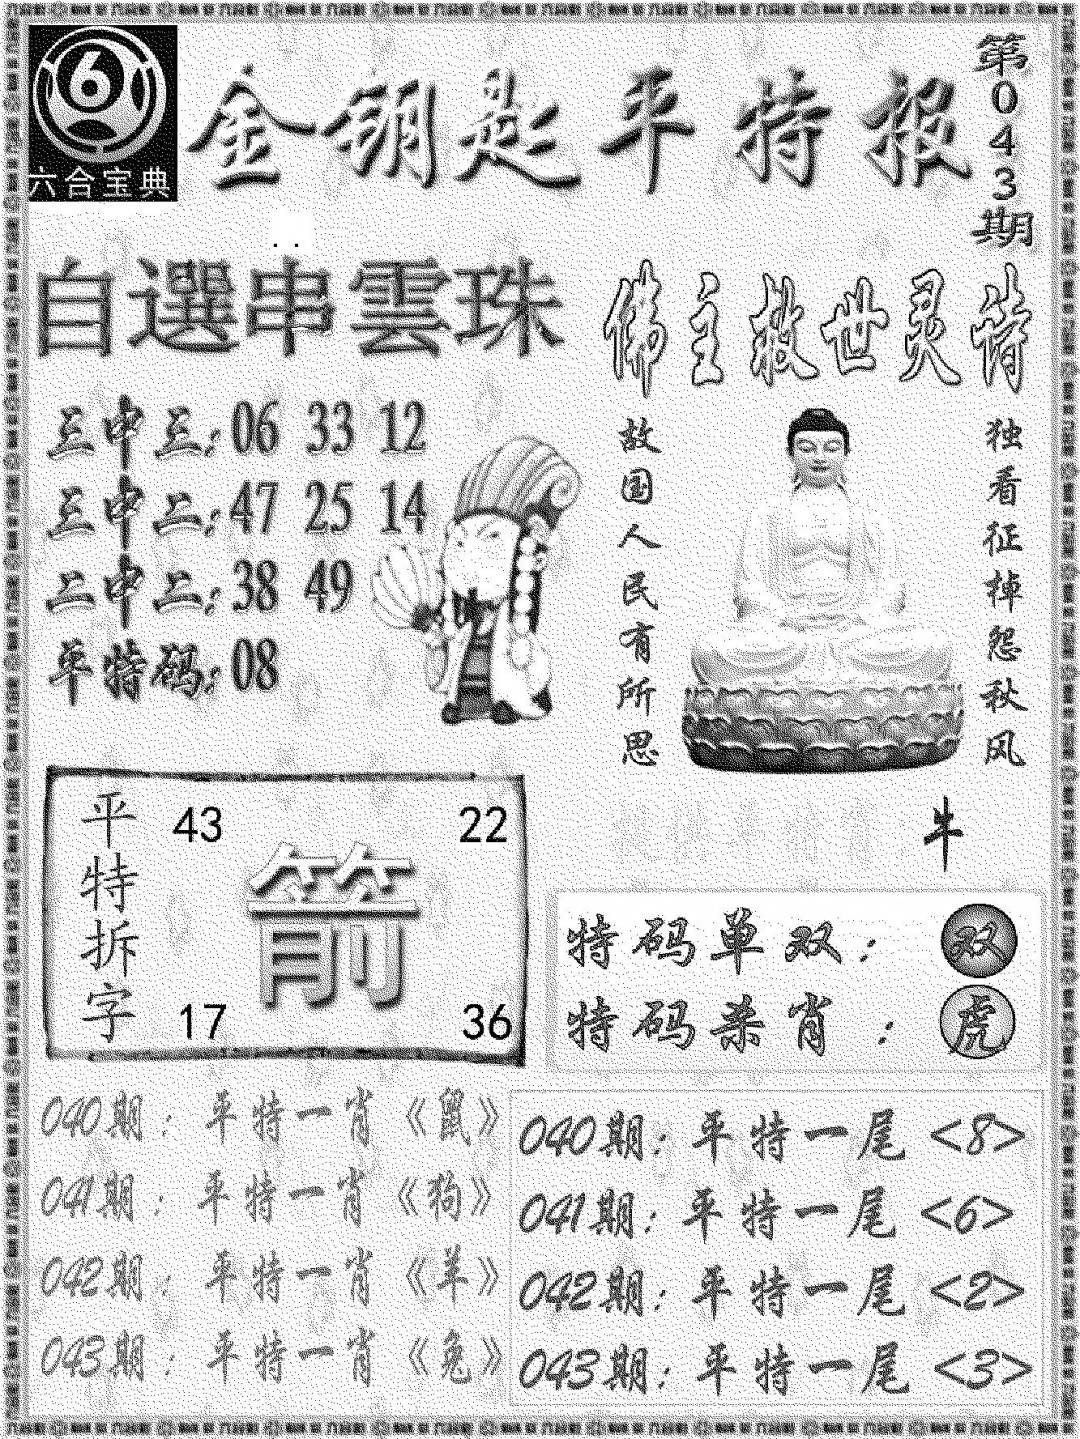 六合宝典
金钥匙平特报
第043期
自選串雲珠
三中三：06 33 12
三中二：47 25 14
二中二：38 49
平特码：08
佛主救世灵诗
独看征掉怨秋风
故国人民有所思
牛
平特拆字
43 22
箭
17 36
特码单双：双
特码杀肖：虎
040期：平特一肖《鼠》
041期：平特一肖《狗》
042期：平特一肖《羊》
043期：平特一肖《兔》
040期：平特一尾<8>
041期：平特一尾<6>
042期：平特一尾<2>
043期：平特一尾<3>